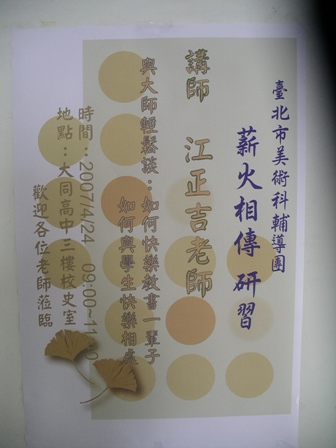 臺北市美術科輔導團
薪火相傳 研習
講師 江正吉老師
與大師輕鬆談：如何快樂教書一輩子
如何與學生快樂相處
時間：2007/4/24 09:00~11
地點：大同高中三樓校史室
歡迎各位老師蒞臨